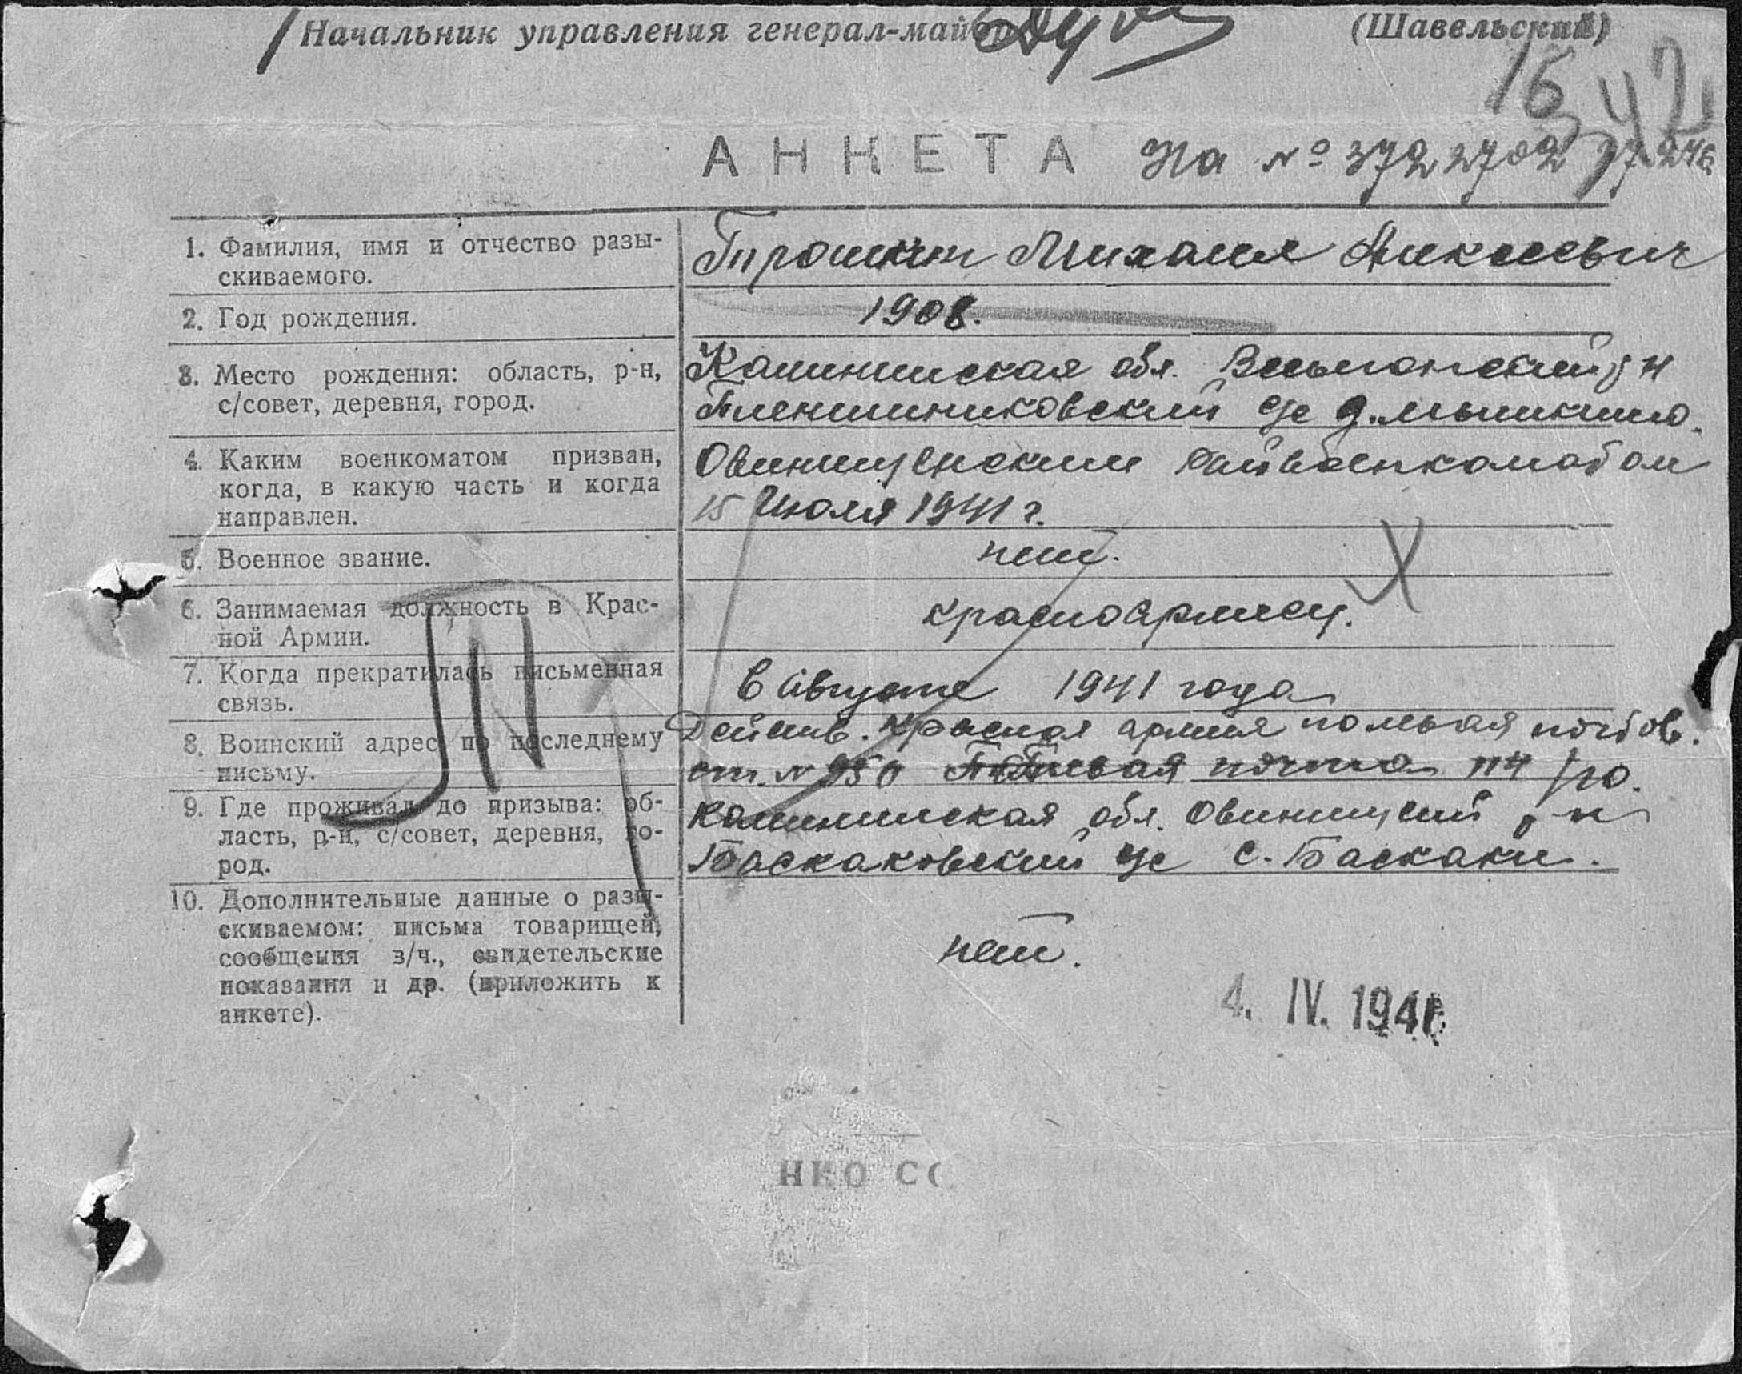 Начальник управления генерал-майор (Шавельский)
15
42
АНКЕТА На № 3722702
1. Фамилия, имя и отчество разы-
скиваемого.
Трошкин Михаил Алексеевич
2. Год рождения.
1908.
3. Место рождения: область, р-н,
с/совет, деревня, город.
Калининская обл. Весьегонский р-н
с/с д.
4. Каким военкоматом призван,
когда, в какую часть и когда
направлен.
Овинищенским Райвоенкоматом
15 Июля 1941 г.
5. Военное звание.
нет.
6. Занимаемая должность в Крас-
ной Армии.
красноармеец.
7. Когда прекратилась письменная
связь.
в августе 1941 года
8. Воинский адрес по последнему
письму.
Действ. красная армия полевая почтов.
ст. № 950 почта п/я
9. Где проживал до призыва: об-
ласть, р-н, с/совет, деревня, го-
род.
Калининская обл. Овинищский р-н
Баскаковский с/с с. Баскаки.
10. Дополнительные данные о разы-
скиваемом: письма товарищей,
сообщения з/ч., свидетельские
показания и др. (приложить к
анкете).
нет.
4. IV. 194
НКО СС